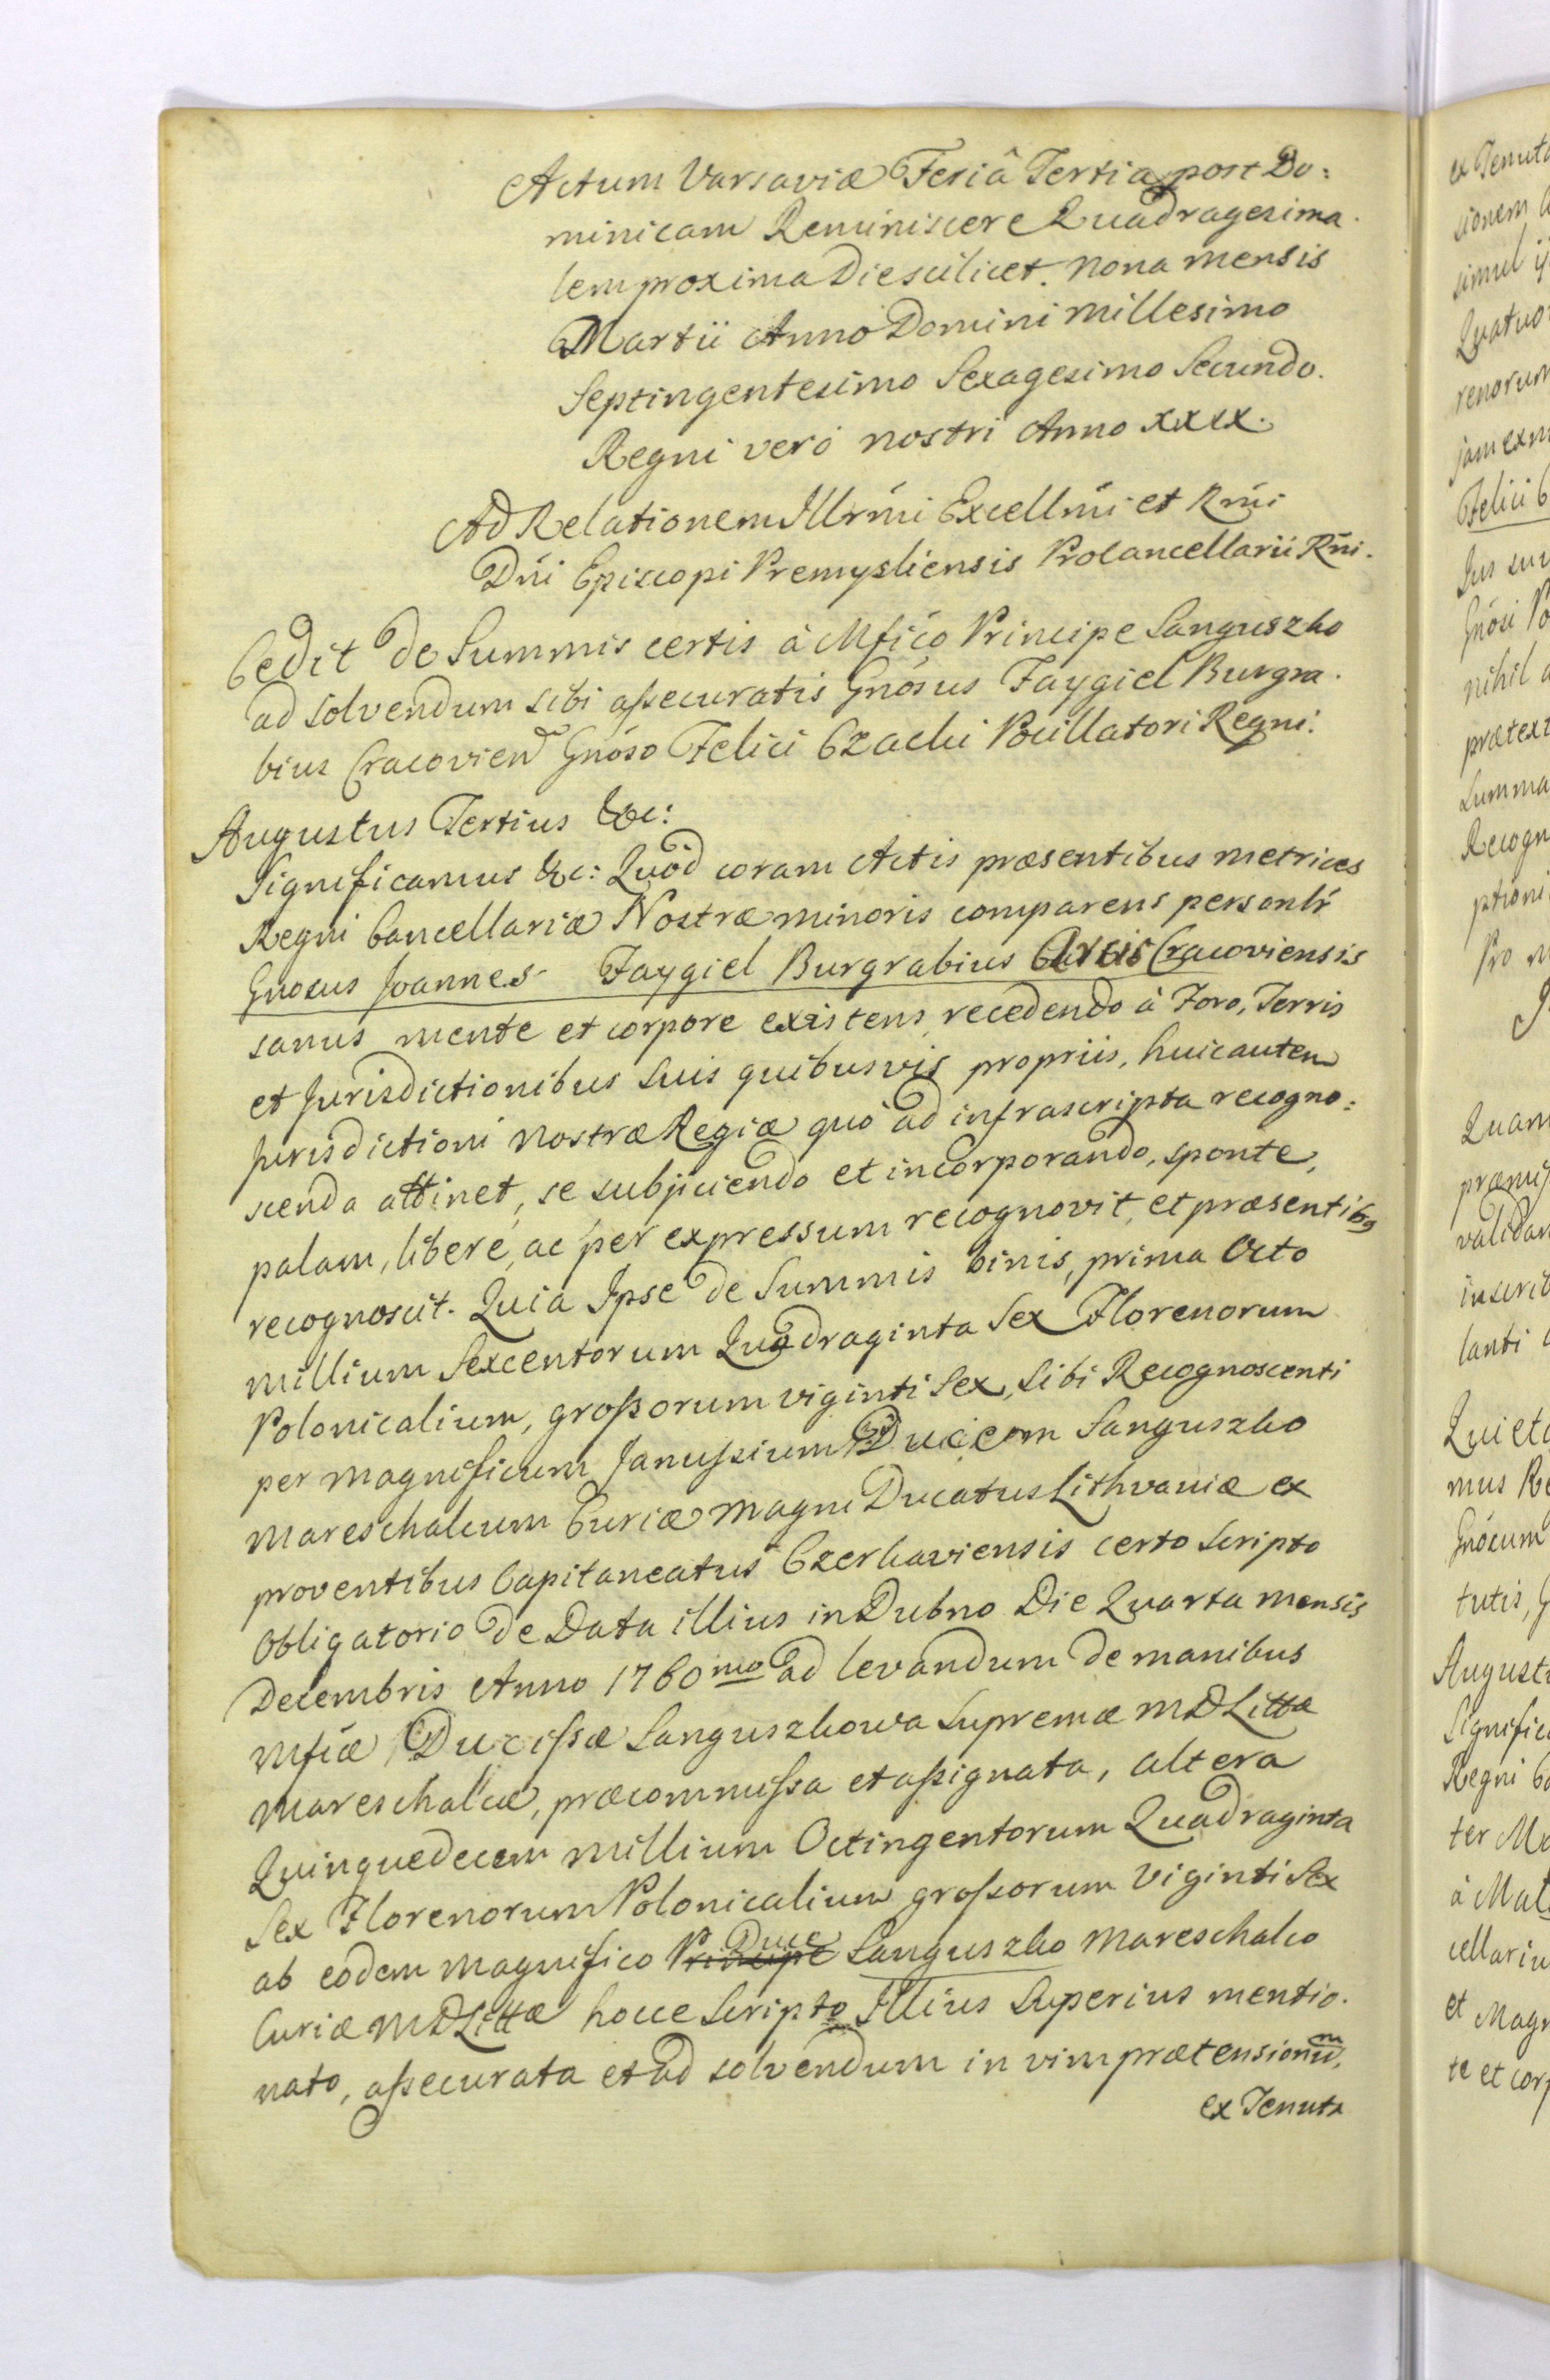 Actum Varsaviæ Feriâ Tertia post Do:
minicam Reminiscere Quadragesima.
lem proxima Die scilicet. nona mensis
Martii Anno Domini millesimo
Septingentesimo Sexagesimo Secundo.
Regni verò nostri Anno XXIX.
Ad Relationem Illrm̃i Excellm̃i et Rm̃i
Dñi Episcopi Premysliensis Procancellarii Rñi.
Cedit de Summis certis à Mfico Principe Sanguszko
ad solvendum sibi assecuratis Gnosus Faygiel Burgra.
bius Cracovien Gnoso Felici Czacki Pocillatori Regni.
Augustus Tertius &c:
Significamus &c: Quod coram Actis præsentibus metrices
Regni Cancellariæ Nostræ minoris comparens personlr
Gnosus Joannes Faygiel Burgrabius Arcis Cracoviensis
sanus mente et corpore existens recedendo à Foro, Terris
et Jurisdictionibus Suis quibusvis propriis, huic autem
Jurisdictioni nostræ Regiæ quò ad infrascripta recogno:
scenda attinet, se subjiciendo et incorporando, sponte,
palam, libere, ac per expressum recognovit, et præsentibg
recognoscit. Quia Ipse de Summis binis, prima Octo
millium Sexcentorum Quadraginta Sex Florenorum
Polonicalium, grossorum viginti Sex, Sibi Recognoscenti
per magnificum Janussium Ducem Sanguszko
Mareschalcum Curiæ Magni Ducatus Lithvaniæ ex
proventibus Capitaneatus Czerkaviensis certo Scripto
Obligatorio de Data illius in Dubno Die Quarta mensis
Decembris Anno 1760mo ad levandum de manibus
Mficæ Ducissæ Sanguszkowa Supremæ MDLittæ
Mareschalcæ, præcommissa et assignata, altera
Quinquedecem millium Octingentorum Quadraginta
Sex Florenorum Polonicalium grossorum Viginti Sex
ab eodem Magnifico Principe Duce Sanguszko Mareschalco
Curiæ MDLittæ hocce Scripto Illius Superius mentio.
nato, assecurata et ad solvendum in vim prætensionum,
ex Tenuta